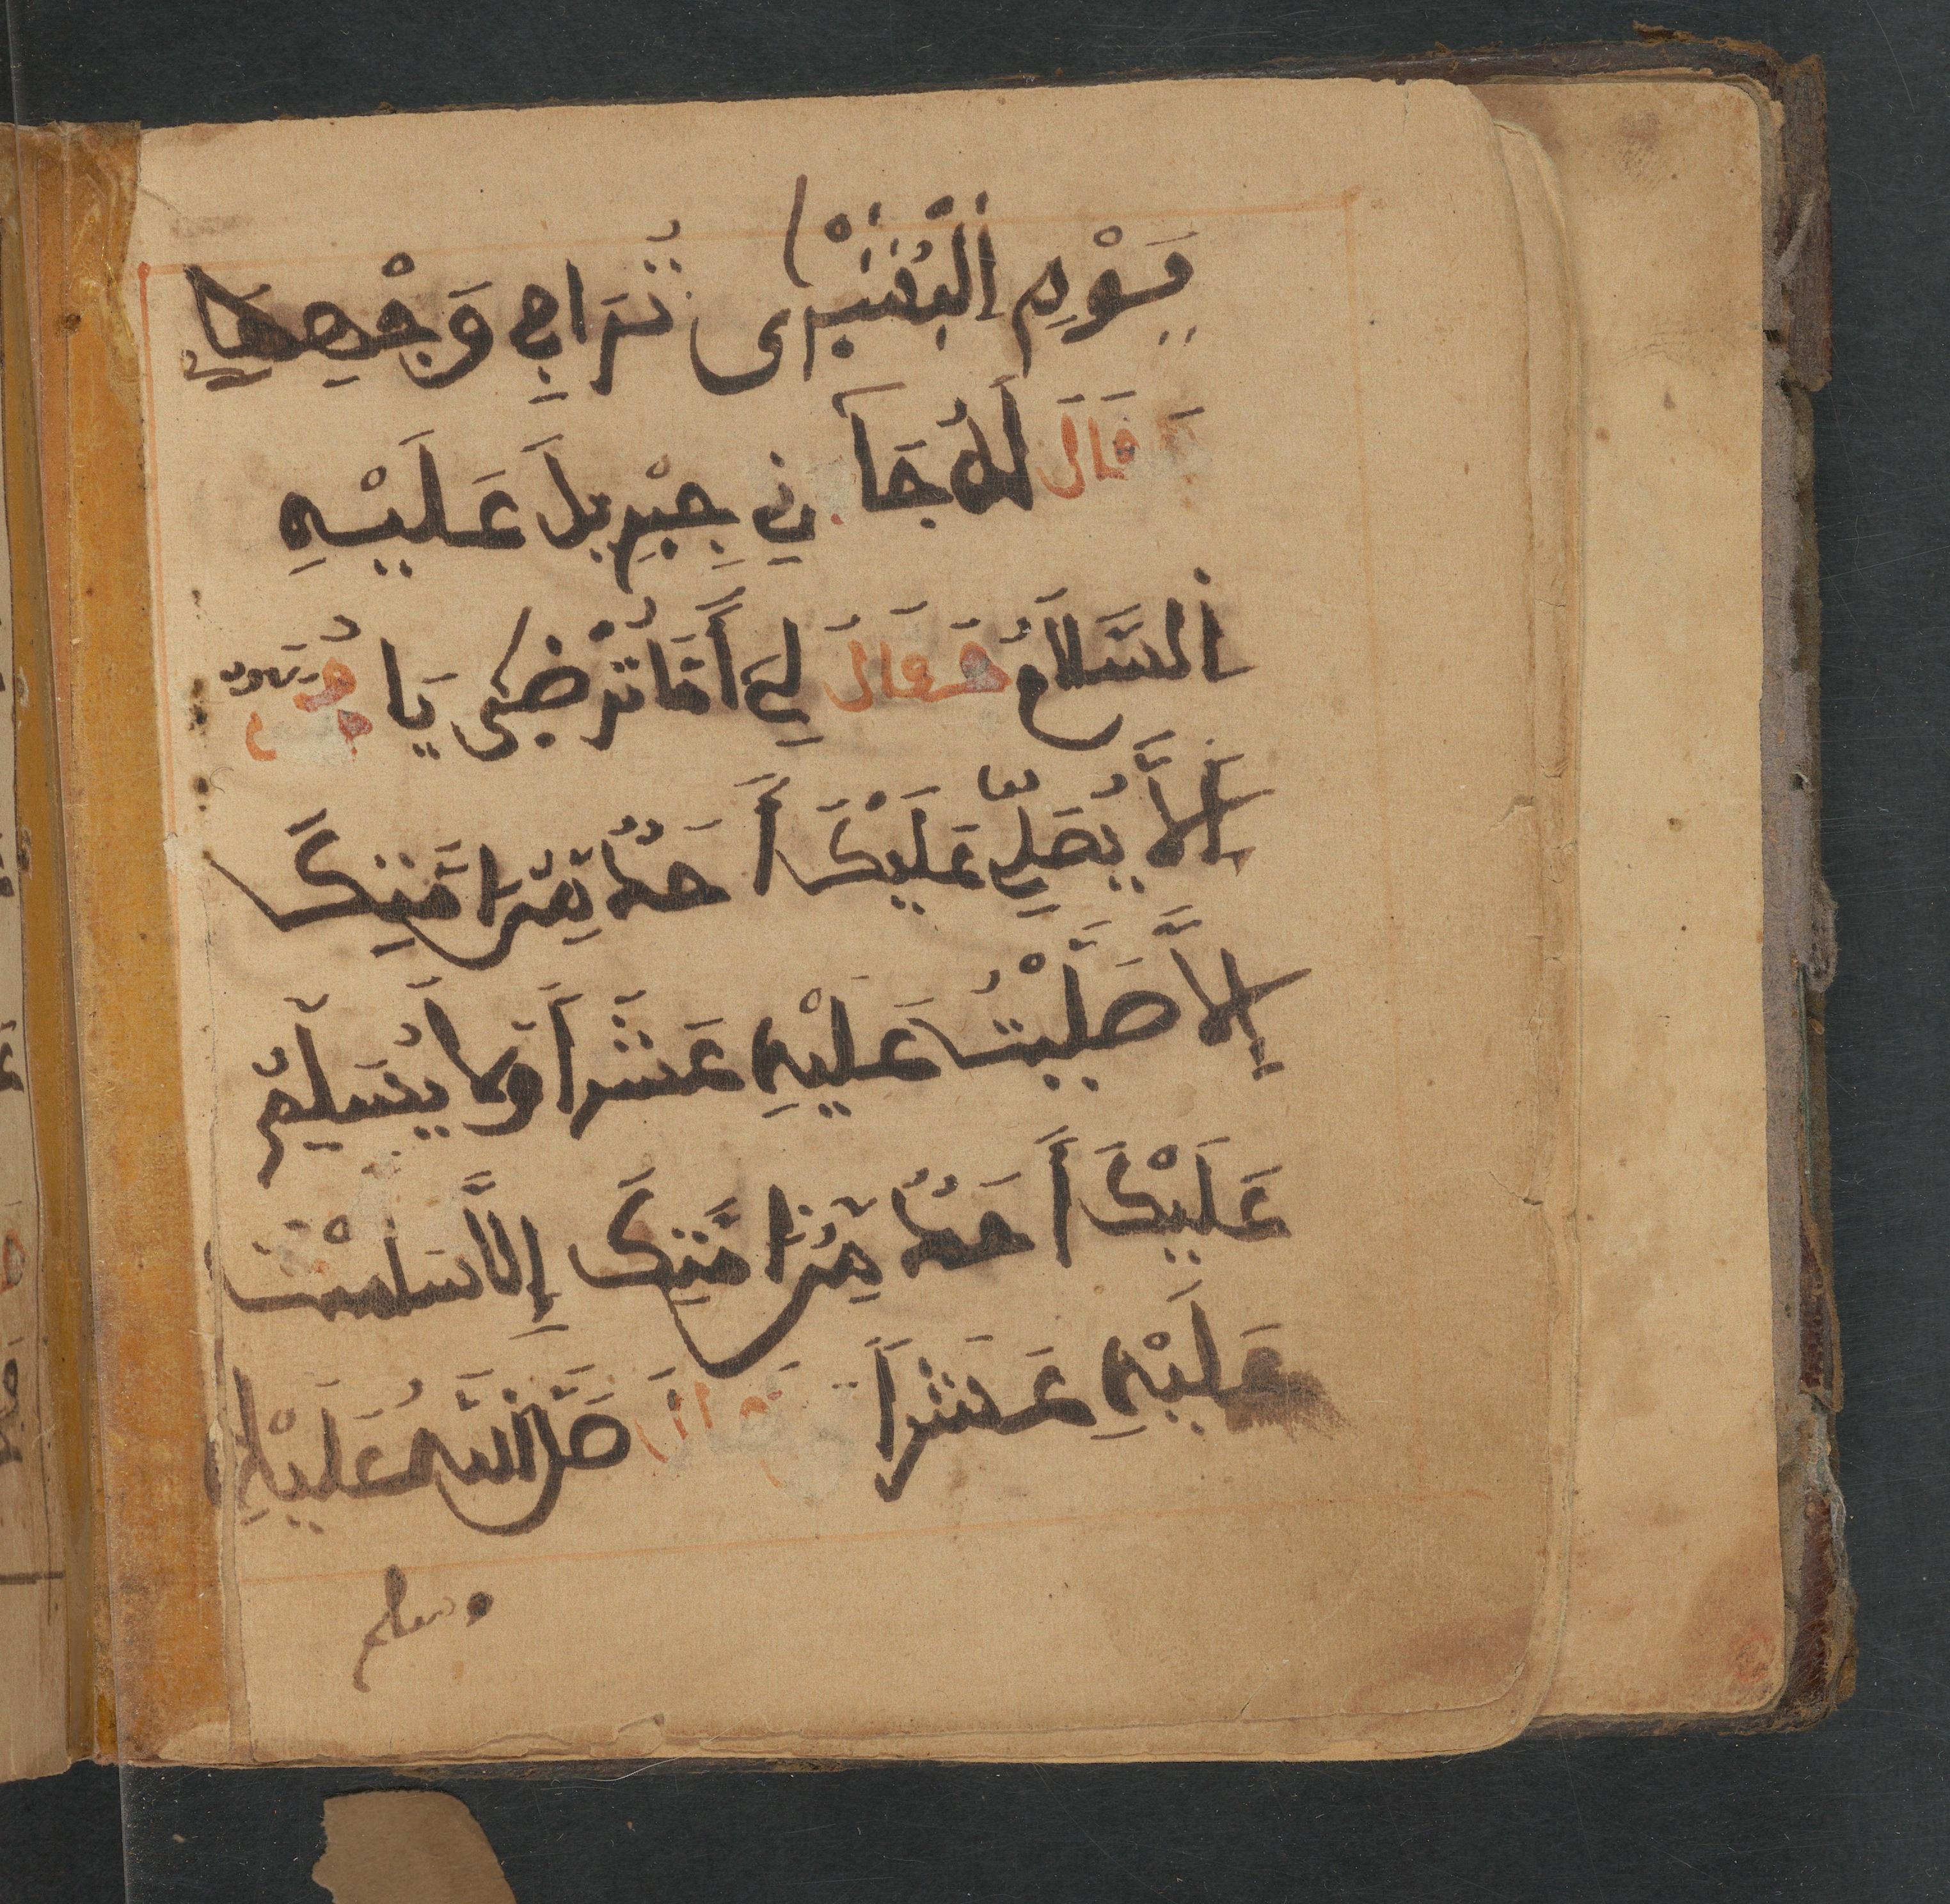 يَوْمٍ اَلْبُشْرَى تُرَا فِي وَجْهِهِ
فَقَالَ لَهُ جَآ نِي جِبْرِيلَ عَلَيْهِ
اَلسَّلَامُ فَقَالَ لِي أَمَا تَرْضَى يَا مُحَمَّدُ
أَلَّا يُصَلِّيَ عَلَيْكَ أَحَدٌ مِّنْ أُمَّتِكَ
إِلَّا صَلَّيْتُ عَلَيْهِ عَشْراً وَلَا يُسَلِّمُ
عَلَيْكَ أَحَدٌ مِّنْ أُمَّتِكَ إِلَّا سَلَّمْتُ
عَلَيْهِ عَشْراً وَقَالَ صَلَّى اللَّهُ عَلَيْهِ
وسلم